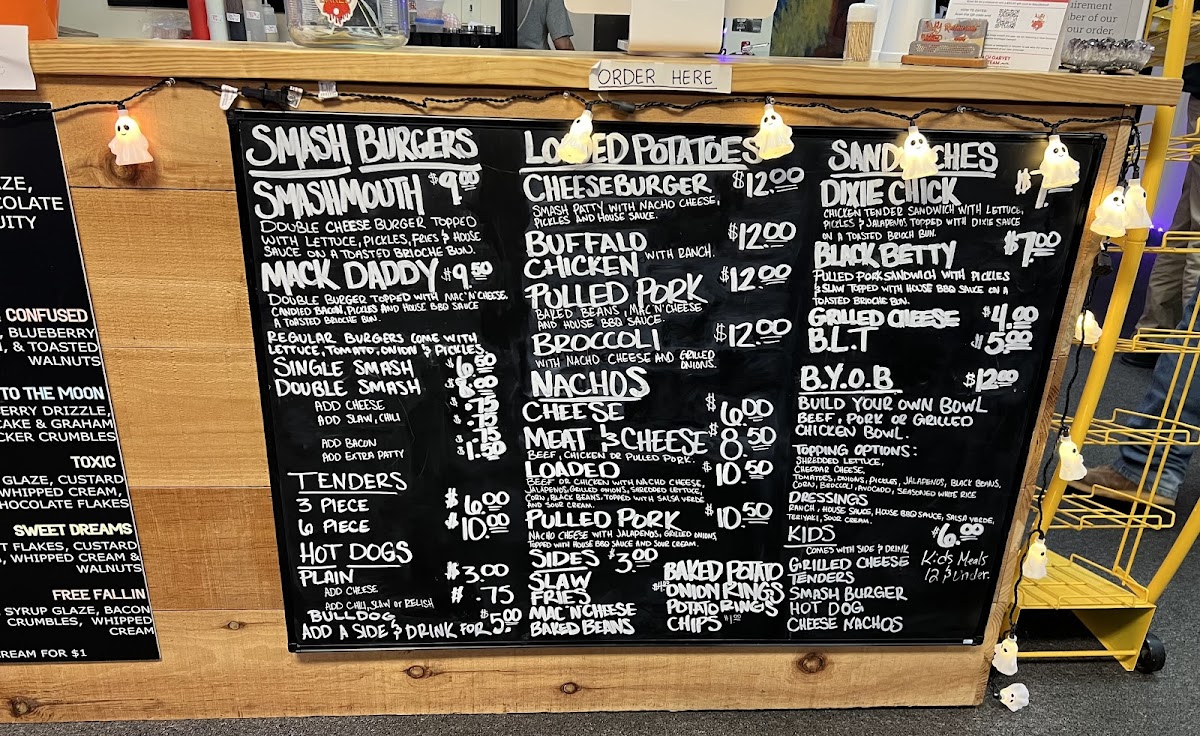 ORDER HERE
AZE,
COLATE
UITY
CONFUSED
, BLUEBERRY
, & TOASTED
WALNUTS
TO THE MOON
ERRY DRIZZLE,
CAKE & GRAHAM
CKER CRUMBLES
TOXIC
GLAZE, CUSTARD
WHIPPED CREAM,
HOCOLATE FLAKES
SWEET DREAMS
T FLAKES, CUSTARD
, WHIPPED CREAM &
WALNUTS
FREE FALLIN
SYRUP GLAZE, BACON
CRUMBLES, WHIPPED
CREAM
REAM FOR $1
SMASH BURGERS
SMASHMOUTH $9.00
DOUBLE CHEESE BURGER TOPPED
WITH LETTUCE, PICKLES, FRIES & HOUSE
SAUCE ON A TOASTED BRIOCHE BUN.
MACK DADDY $9.50
DOUBLE BURGER TOPPED WITH MAC'N'CHEESE,
CANDIED BACON, PICKLES AND HOUSE BBQ SAUCE
A TOASTED BRIOCHE BUN.
REGULAR BURGERS COME WITH
LETTUCE, TOMATO, ONION & PICKLES
SINGLE SMASH $6.50
DOUBLE SMASH 8.00
ADD CHEESE .75
ADD SLAW, CHILI
ADD BACON .75
ADD EXTRA PATTY 1.50
TENDERS
3 PIECE $6.00
6 PIECE $10.00
HOT DOGS
PLAIN $3.00
ADD CHEESE $.75
ADD CHILI, SLAW OR RELISH
BULLDOG $5.00
ADD A SIDE & DRINK FOR
LOADED POTATOES
CHEESEBURGER $12.00
SMASH PATTY WITH NACHO CHEESE,
PICKLES AND HOUSE SAUCE.
BUFFALO $12.00
CHICKEN WITH RANCH.
PULLED PORK $12.00
BAKED BEANS, MAC'N'CHEESE
AND HOUSE BBQ SAUCE.
BROCCOLI $12.00
WITH NACHO CHEESE AND GRILLED
ONIONS.
NACHOS
CHEESE $6.00
MEAT & CHEESE $8.50
BEEF, CHICKEN OR PULLED PORK.
LOADED $10.50
BEEF OR CHICKEN WITH NACHO CHEESE,
JALAPENOS, GRILLED ONIONS, SHREDDED LETTUCE,
CORN, BLACK BEANS, TOPPED WITH SALSA VERDE
AND SOUR CREAM.
PULLED PORK $10.50
NACHO CHEESE WITH JALAPENOS, GRILLED ONIONS,
TOPPED WITH HOUSE BBQ SAUCE AND SOUR CREAM.
SIDES $3.00
SLAW
FRIES
MAC'N'CHEESE
BAKED BEANS
BAKED POTATO
ONION RINGS
POTATO RINGS
CHIPS $1.00
SANDWICHES
DIXIE CHICK $
CHICKEN TENDER SANDWICH WITH LETTUCE,
PICKLES & JALAPENOS TOPPED WITH DIXIE SAUCE
ON A TOASTED BRIOCH BUN.
BLACK BETTY $7.00
PULLED PORK SANDWICH WITH PICKLES
& SLAW TOPPED WITH HOUSE BBQ SAUCE ON A
TOASTED BRIOCHE BUN.
GRILLED CHEESE $4.00
B.L.T $5.00
B.Y.O.B $12.00
BUILD YOUR OWN BOWL
BEEF, PORK OR GRILLED
CHICKEN BOWL.
TOPPING OPTIONS:
SHREDDED LETTUCE,
CHEDDAR CHEESE,
TOMATOES, ONIONS, PICKLES, JALAPENOS, BLACK BEANS,
CORN, BROCCOLI, AVOCADO, SEASONED WHITE RICE
DRESSINGS
RANCH, HOUSE SAUCE, HOUSE BBQ SAUCE, SALSA VERDE,
TERIYAKI, SOUR CREAM.
KIDS $6.00
COMES WITH SIDE & DRINK
GRILLED CHEESE
TENDERS
SMASH BURGER
HOT DOG
CHEESE NACHOS
Kids Meals
12 & Under.